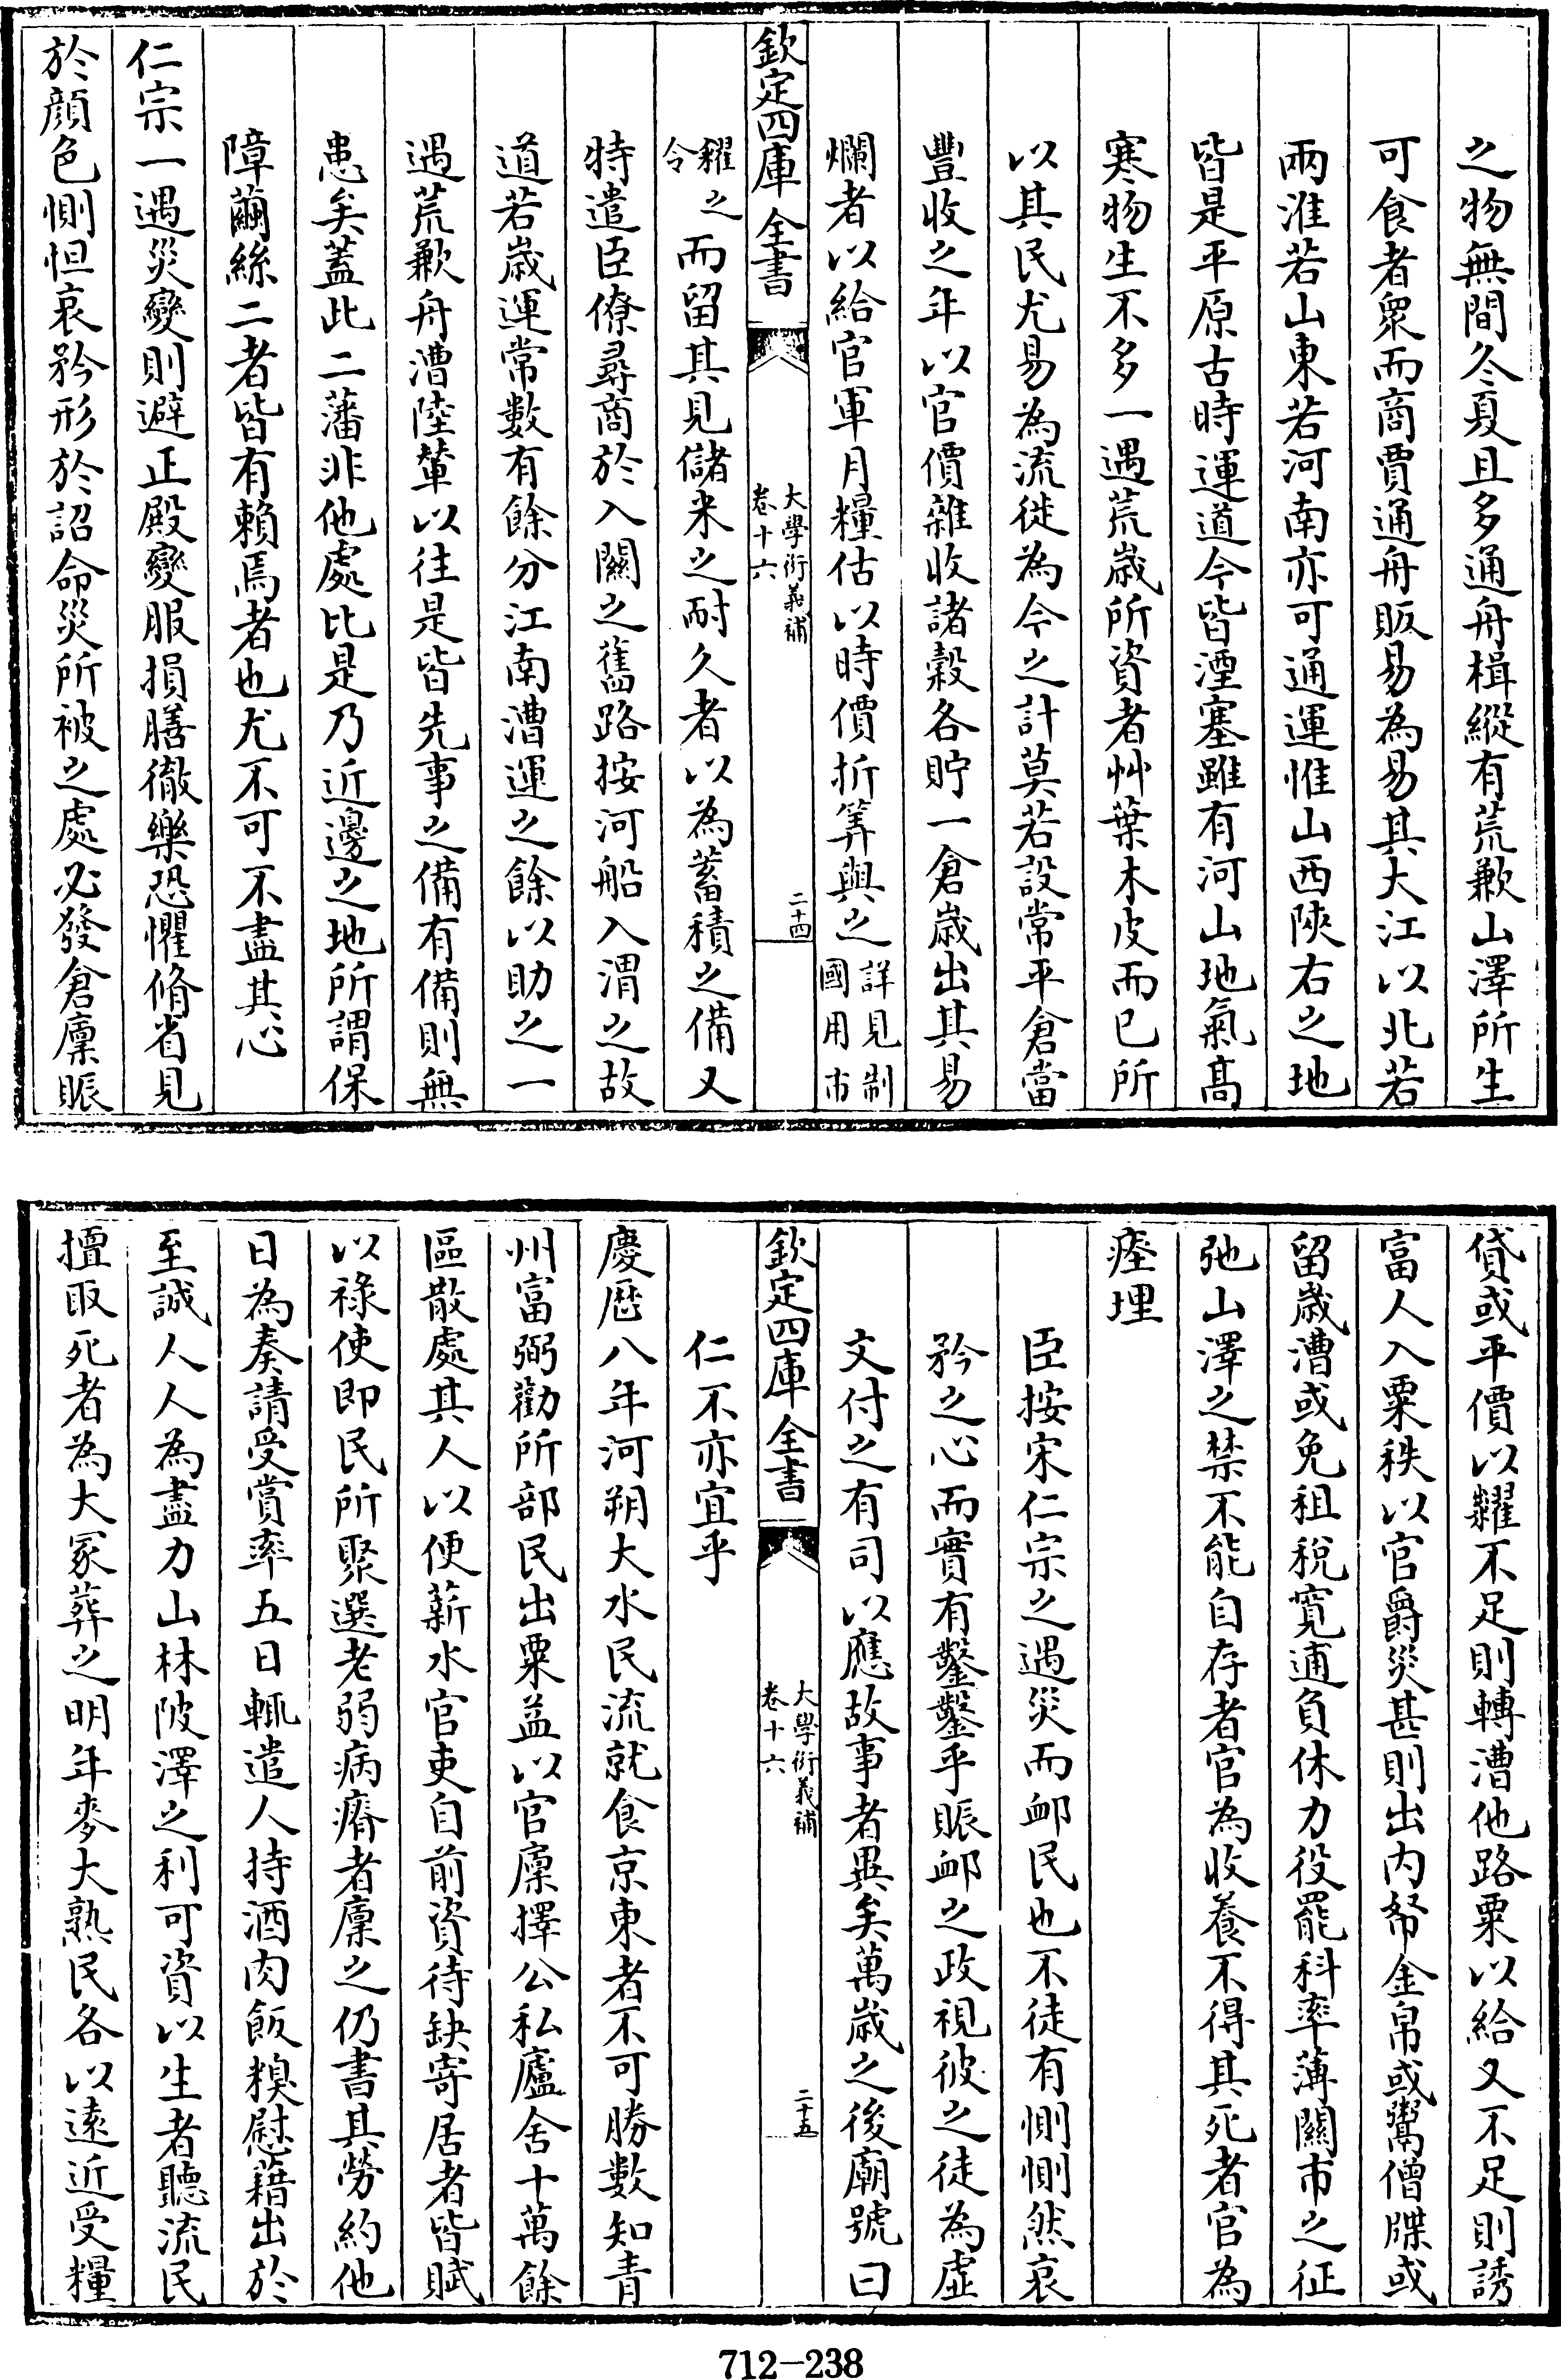 之物無間冬夏且多通舟楫縱有荒歉山澤所生
可食者衆而商賈通舟販易為易其大江以北若
兩淮若山東若河南亦可通運惟山西陜右之地
皆是平原古時運道今皆湮塞雖有河山地氣髙
寒物生不多一遇荒歲所資者艸葉木皮而已所
以其民尤易為流徙為今之計莫若設常平倉當
豐收之年以官價雜收諸穀各貯一倉歲出其易
爛者以給官軍月糧估以時價折筭與之詳見制國用市
欽定四庫全書
大學衍義補
卷十六
二十四
糴之令而留其見儲米之耐久者以為蓄積之備又
特遣臣僚尋商於入關之舊路按河船入渭之故
道若歲運常數有餘分江南漕運之餘以助之一
遇荒歉舟漕陸輦以往是皆先事之備有備則無
患矣蓋此二藩非他處比是乃近邊之地所謂保
障繭絲二者皆有賴焉者也尤不可不盡其心
仁宗一遇災變則避正殿變服損膳徹樂恐懼脩省見
於顔色惻怛哀矜形於詔命災所被之處必發倉廩賑
貸或平價以糶不足則轉漕他路粟以給又不足則誘
富人入粟秩以官爵災甚則出内帑金帛或鬻僧牒或
留歲漕或免租稅寛逋負休力役罷科率薄關市之征
弛山澤之禁不能自存者官為收養不得其死者官為
瘞埋
臣按宋仁宗之遇災而䘏民也不徒有惻惻然哀
矜之心而實有鑿鑿乎賑䘏之政視彼之徒為虚
文付之有司以應故事者異矣萬歲之後廟號曰
欽定四庫全書
大學衍義補
卷十六
二十五
仁不亦宜乎
慶厯八年河朔大水民流就食京東者不可勝數知青
州富弼勸所部民出粟益以官廩擇公私廬舍十萬餘
區散處其人以便薪水官吏自前資待缺寄居者皆賦
以祿使即民所聚選老弱病瘠者廩之仍書其勞約他
日為奏請受賞率五日輒遣人持酒肉飯糗慰藉出於
至誠人人為盡力山林陂澤之利可資以生者聽流民
擅取死者為大冢葬之明年麥大熟民各以遠近受糧
712-238